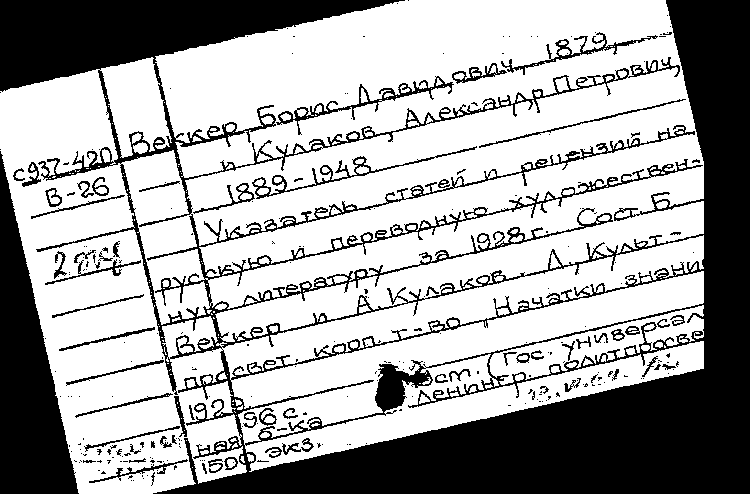 Веккер, Борис Давидович, 1879,
и Кулаков, Александр Петрович,
1889-1948
с937-420
В-26
2 экз
Указатель статей и рецензий на
русскую и переводную художествен-
ную литературу за 1928г. Сост. Б.
Веккер и А. Кулаков. Л., Культ-
просвет. кооп. т-во „Начатки знаний
1929
96 с. ст. (Гос. универсаль
ная б-ка Ленингр. политпросве
1500 экз.